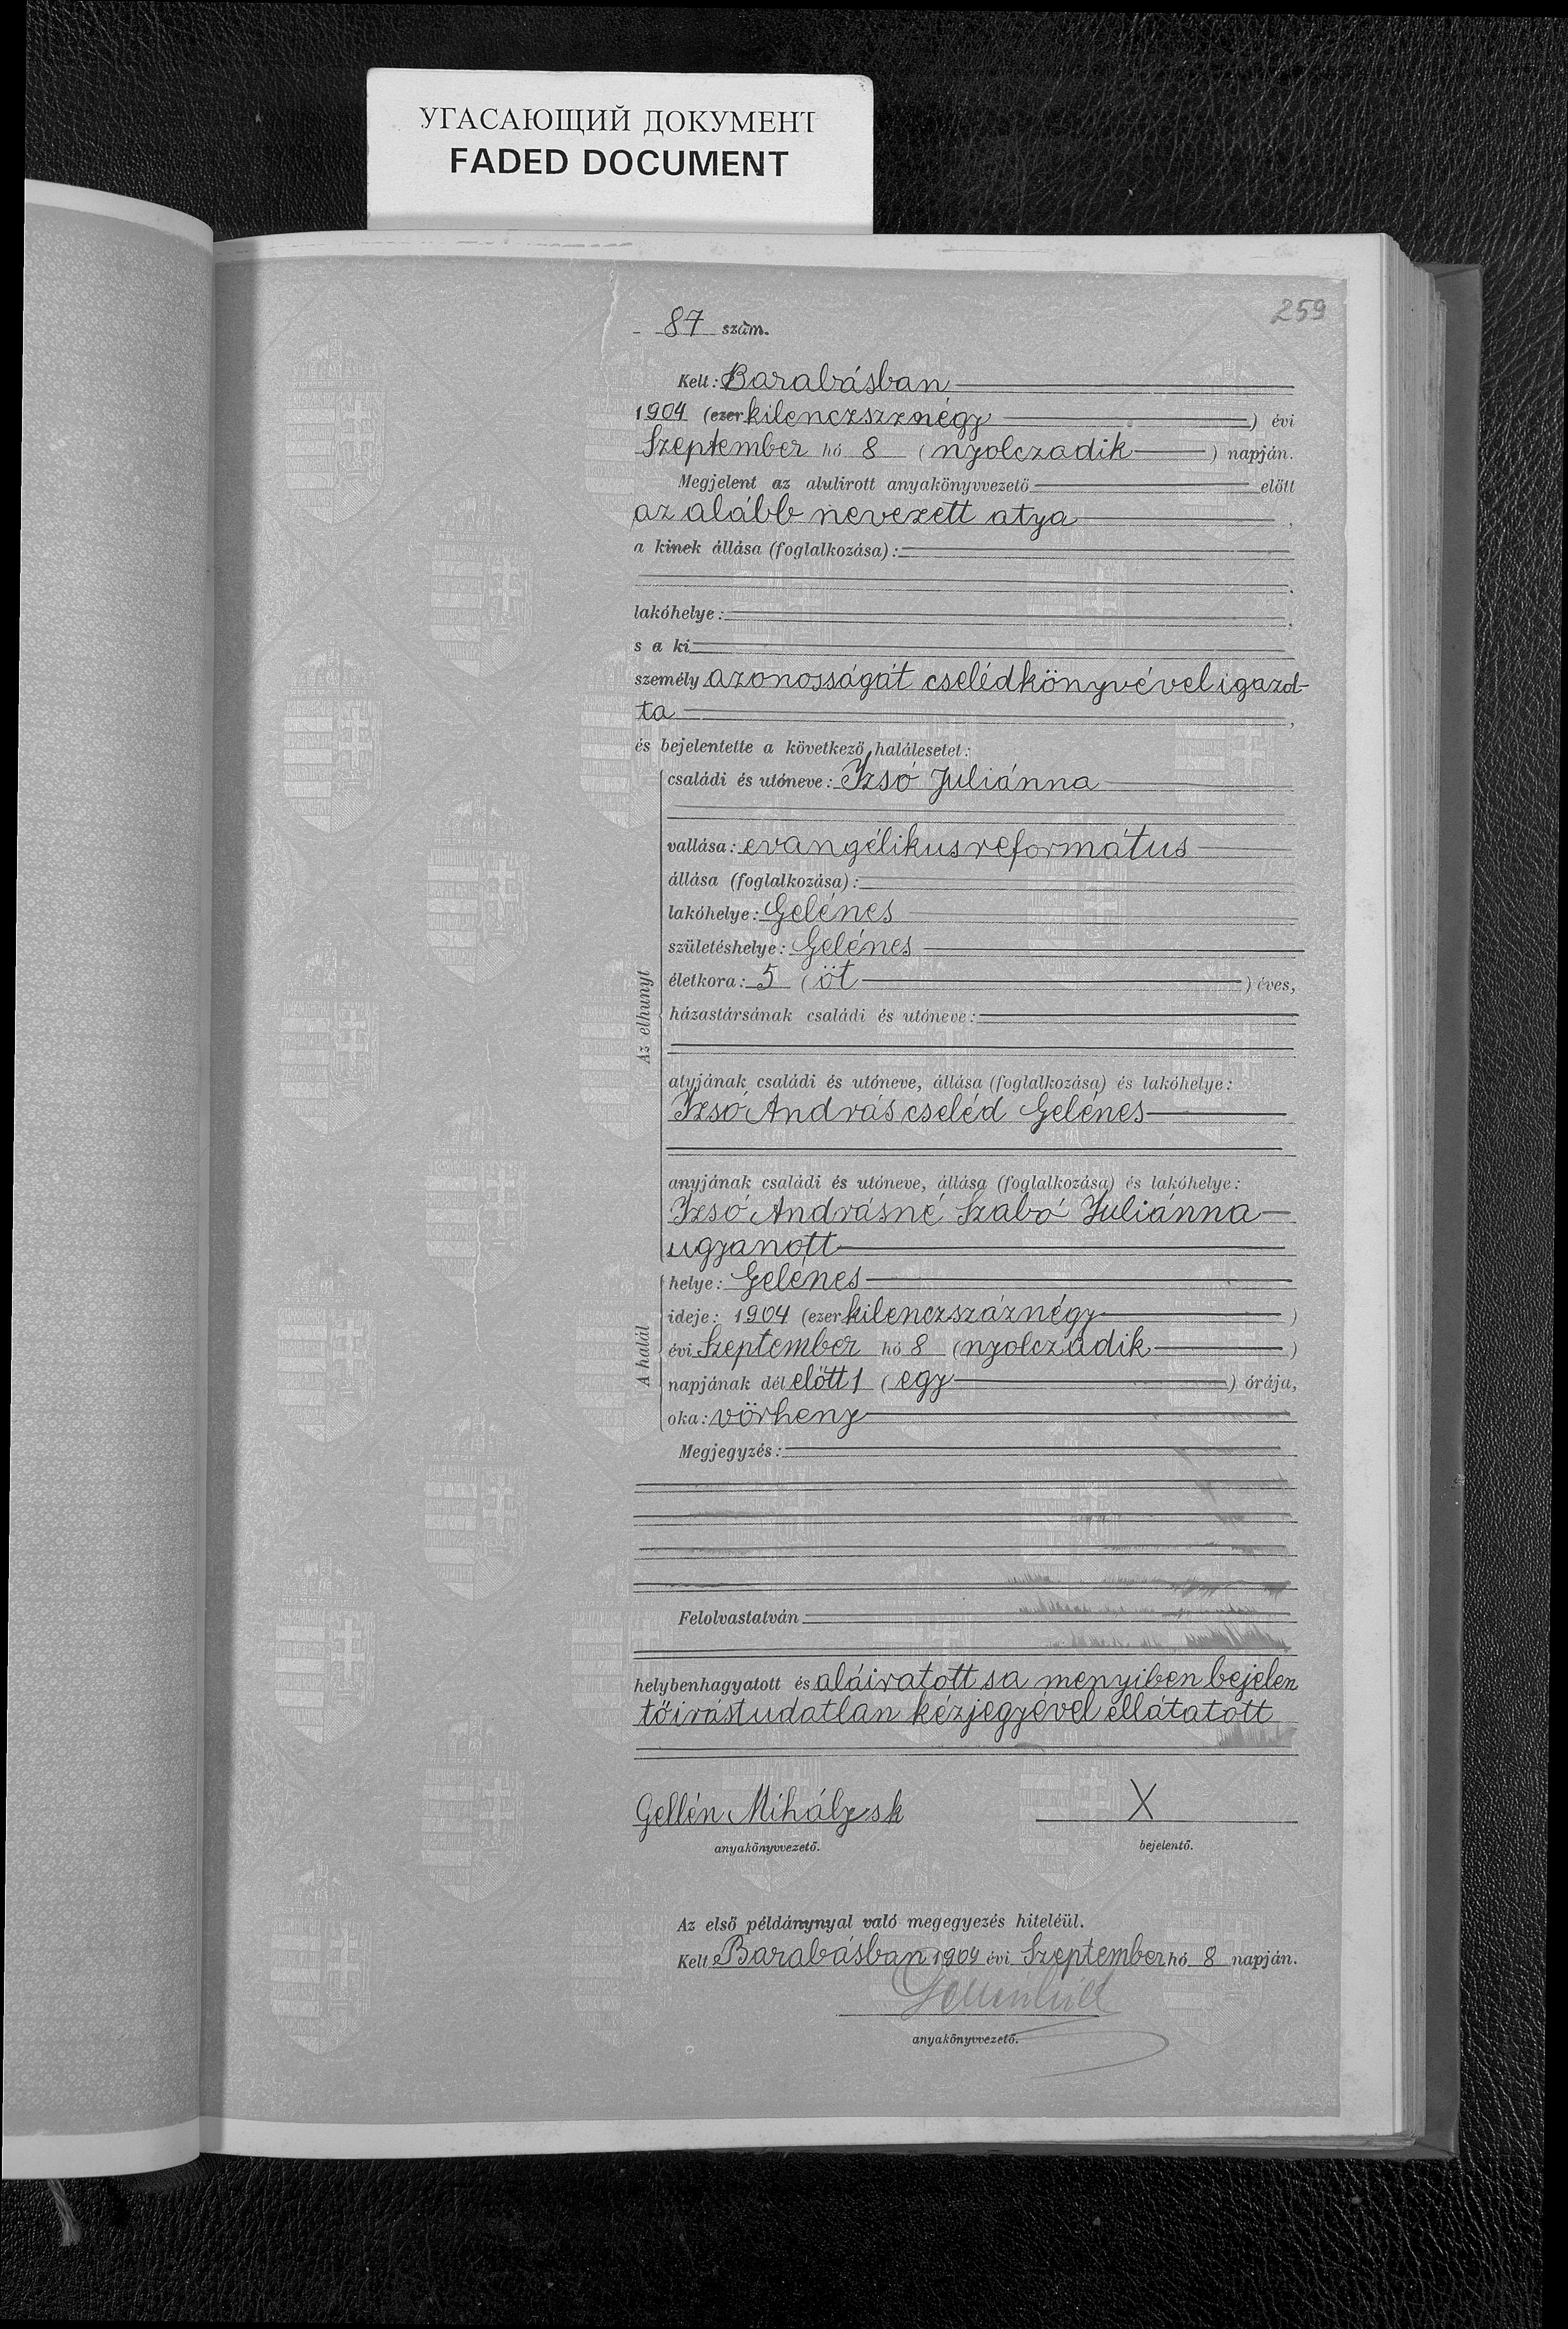 УГАСАЮЩИЙ ДОКУМЕНТ
FADED DOCUMENT
259
87 szám.
Kelt: Barabásban
1904 (ezer kilenczszznégy) évi
Szeptember hó 8 (nyolczadik) napján.
Megjelent az alulirott anyakönyvvezető előtt
az alább nevezett atya,
a kinek állása (foglalkozása):
lakóhelye:
s a ki
személy azonosságát cselédkönyvével igazol-
ta,
és bejelentette a következő halálesetet:
Az elhunyt
családi és utóneve: Izsó Juliánna
vallása: evangélikus református
állása (foglalkozása):
lakóhelye: Gelénes
születéshelye: Gelénes
életkora: 5 (öt) éves,
házastársának családi és utóneve:
atyjának családi és utóneve, állása (foglalkozása) és lakóhelye:
Izsó András cseléd Gelénes
anyjának családi és utóneve, állása (foglalkozása) és lakóhelye:
Izsó Andrásné Szabó Juliánna
ugyanott
A halál
helye: Gelénes
ideje: 1904 (ezer kilenczszáznégy)
évi Szeptember hó 8 (nyolczadik)
napjának dél előtt 1 (egy) órája,
oka: vörheny
Megjegyzés:
Felolvastatván
helybenhagyatott és aláiratott s a menyiben bejelen
tő irástudatlan kézjegyével ellátatott
Gellén Mihály sk X
anyakönyvvezető. bejelentő.
Az első példánynyal való megegyezés hiteléül.
Kelt Barabásban 1904 évi Szeptember hó 8 napján.
anyakönyvvezető.